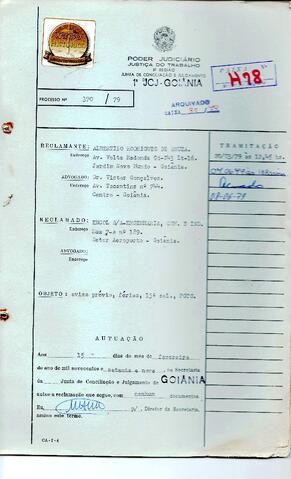 PODER JUDICIÁRIO
JUSTIÇA DO TRABALHO
JUNTA DE CONCILIAÇÃO E JULGAMENTO
1ª JCJ - GOIÂNIA
H78
PROCESSO Nº 370 / 79
ARQUIVADO
RECLAMANTE: RODRIGUES DE SOUZA.
Endereço Av. Volta Redonda
Jardim Novo Mundo - Goiânia.
ADVOGADO: Dr. Victor Gonçalves.
Endereço Av. Tocantins nº 944.
Centro - Goiânia.
RECLAMADO: S/A-ENGENHARIA, COM. E IND.
Endereço Rua 7-a nº 189.
Setor Aeroporto - Goiânia.
ADVOGADO:
Endereço
OBJETO: aviso prévio, férias, 13º sal., FGTS.
TRAMITAÇÃO
AUTUAÇÃO
Aos 15 dias do mês de fevereiro
do ano de mil novecentos e setenta e nove, na Secretaria
da Junta de Conciliação e Julgamento de GOIÂNIA
autuo a reclamação que segue, com nenhum documentos
Eu, p/ Diretor de Secretaria,
assino este termo.